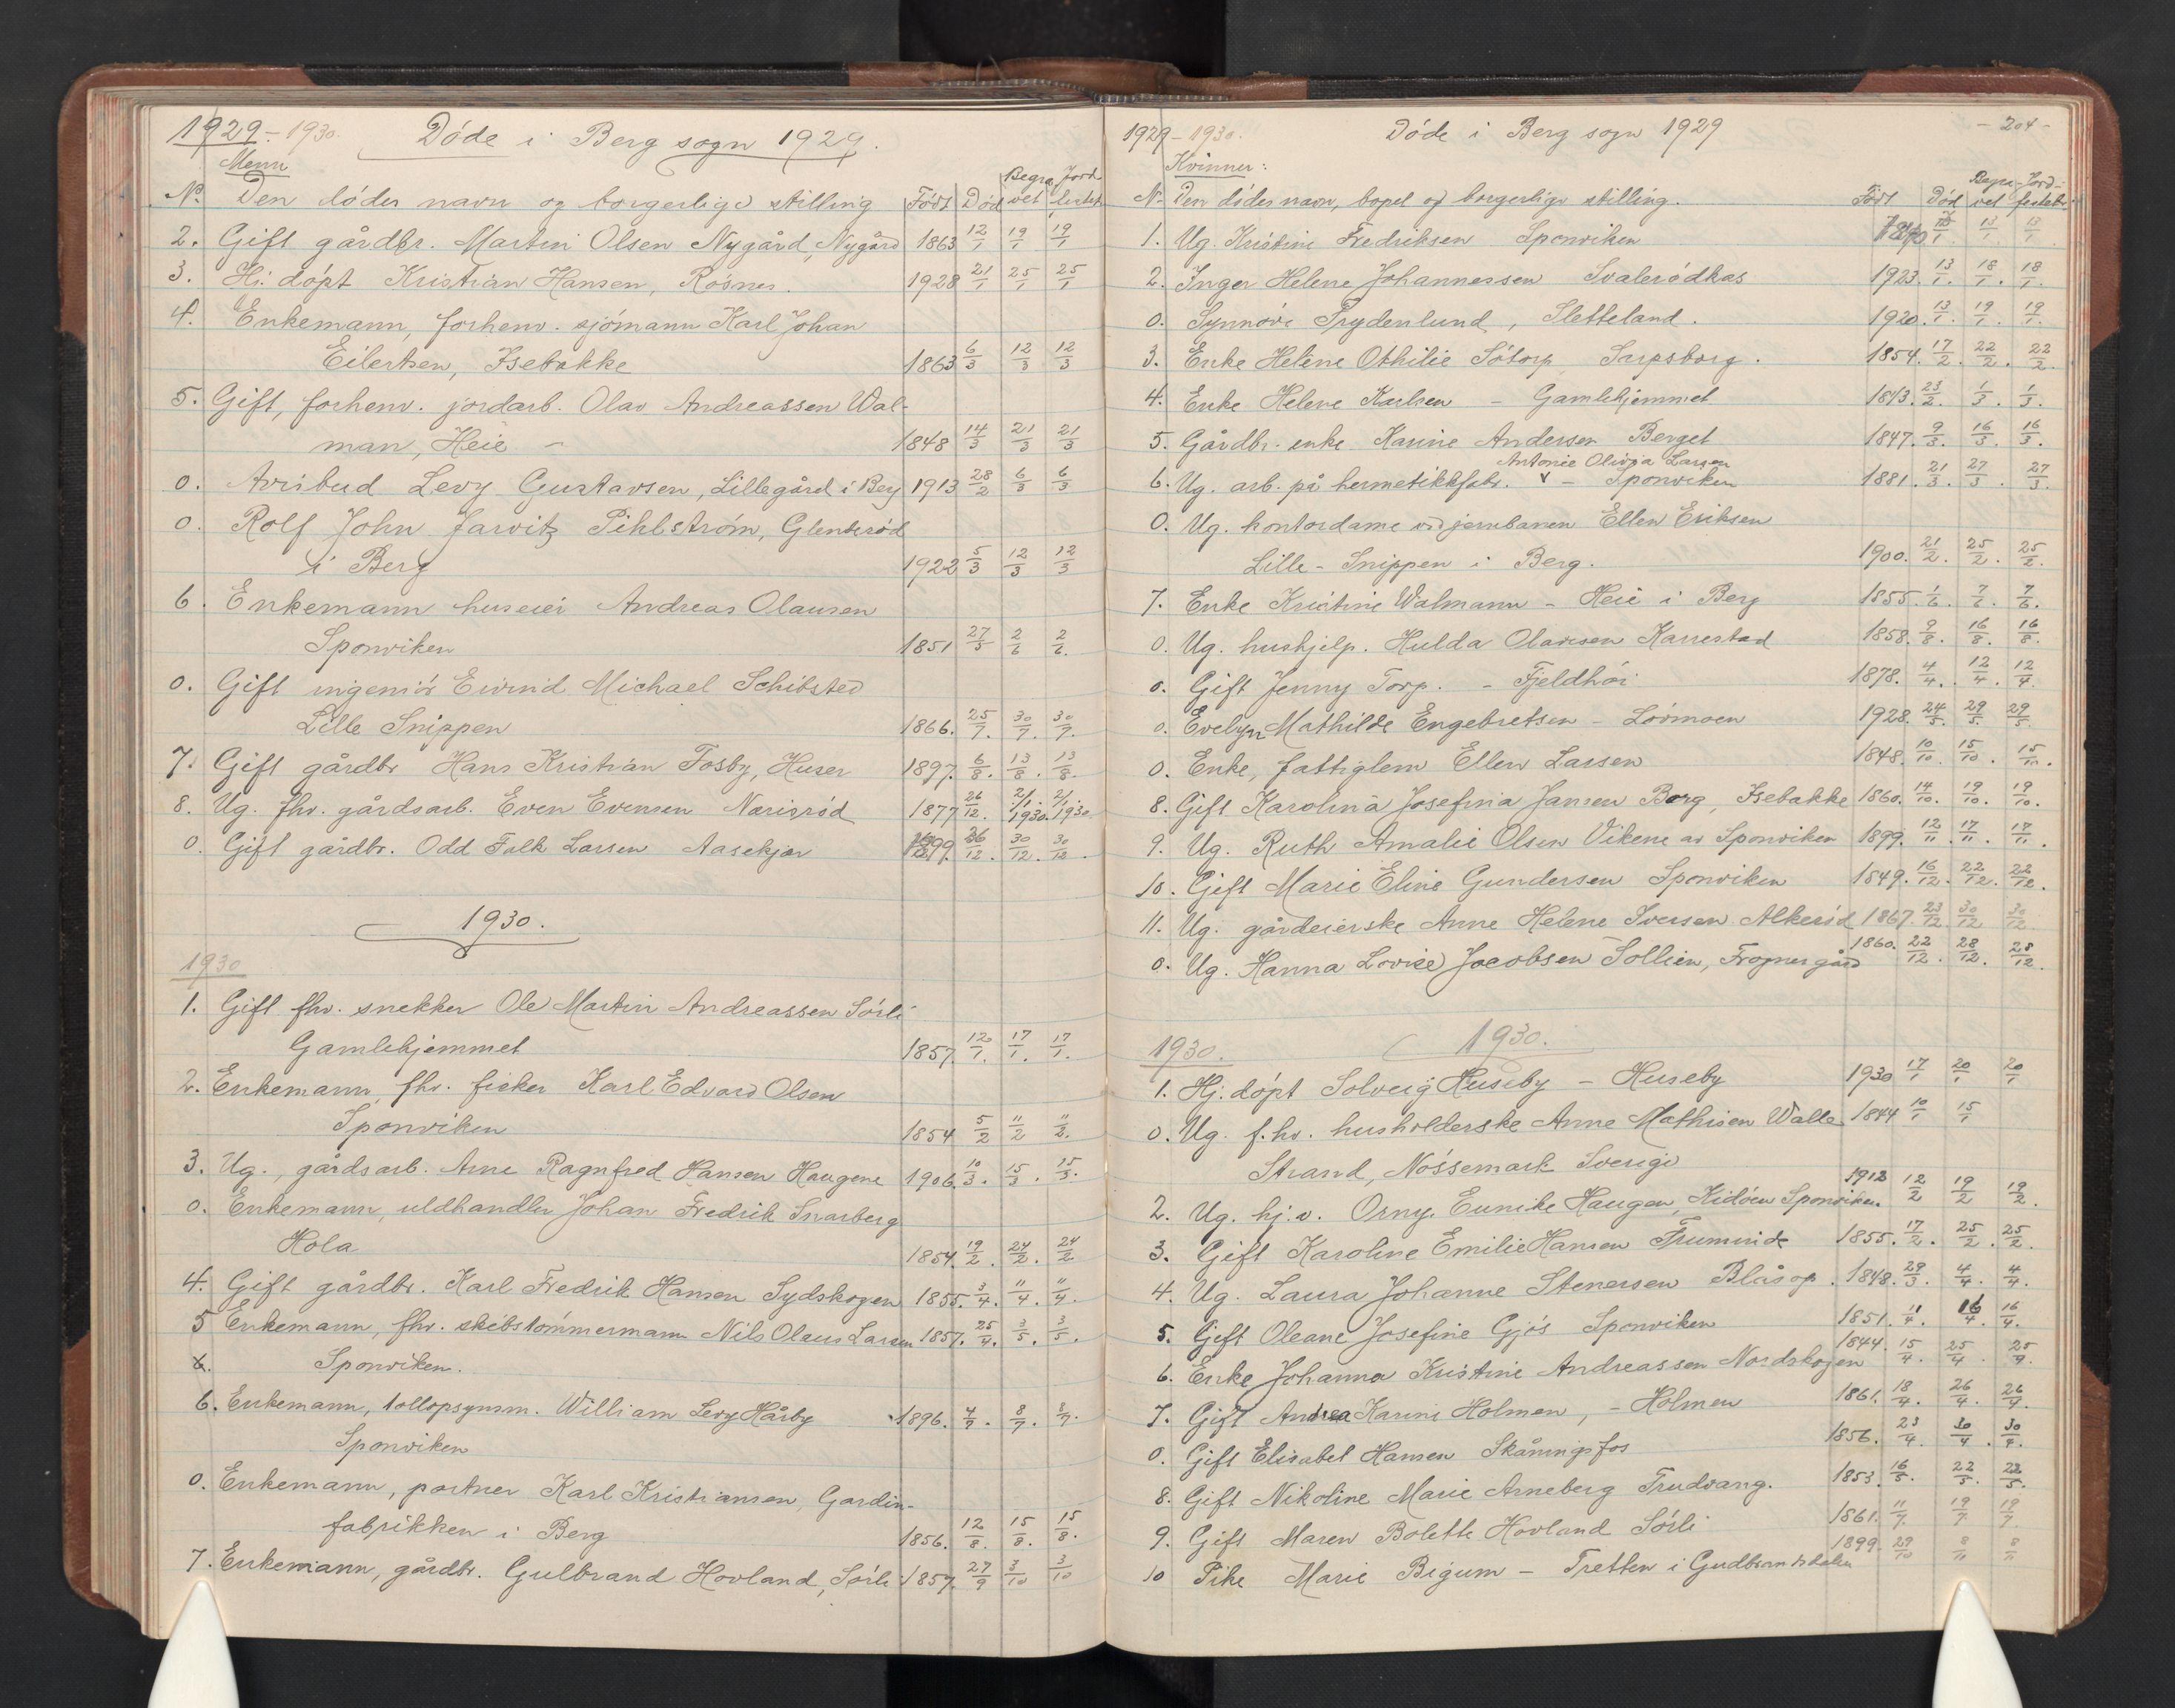 1929 – 1930. Døde i Berg sogn 1929.
Menn
No. Den dødes navn og borgerlige stilling Født Død Begravet Jordfestet
2. Gift gårdbr. Martin Olsen Nygård, Nygård 1863 12/1 19/1 19/1
3. Hj. døpt Kristian Hansen, Røsnes. 1928 21/1 25/1 25/1
4. Enkemann, forhenv. sjømann Karl Johan
Eilertsen, Isebakke 1863 6/3 12/3 12/3
5. Gift, forhenv. jordarb. Olav Andreassen Wal-
man, Heie – 1848 14/3 21/3 21/3
0. Avisbud Levy Gustavsen, Lillegård i Berg 1913 28/2 6/3 6/3
0. Rolf John Jarvitz Pihlstrøm, Glenterød
i Berg 1922 5/3 12/3 12/3
6. Enkemann huseier Andreas Olausen
Sponviken 1851 27/5 2/6 2/6.
0. Gift ingeniør Eivind Michael Schibsted
Lille Snippen 1866. 25/7. 30/7. 30/7.
7. Gift gårdbr Hans Kristian Fosby, Huser 1897. 6/8. 13/8. 13/8.
8. Ug. fhv. gårdsarb. Even Evensen Norisrød 1877 26/12. 2/1. 1930. 2/1. 1930.
0. Gift gårdbr. Odd Falk Larsen Aasekjær 1899. 26/12. 30/12. 30/12.
1930.
1930
1. Gift fhv. snekker Ole Martin Andreassen Sørli
Gamlehjemmet 1857. 12/1. 17/1. 17/1.
2. Enkemann, fhv. fisker Karl Edvard Olsen
Sponviken 1854 5/2 11/2 11/2.
3. Ug., gårdsarb. Arne Ragnfred Hansen Haugene 1906. 10/3. 15/3. 15/3.
0. Enkemann, uldhandler Johan Fredrik Snarberg
Hola 1854. 19/2. 24/2. 24/2
4. Gift gårdbr. Karl Fredrik Hansen Sydskogen 1855. 3/4. 11/4. 11/4.
5 Enkemann, fhv. skibstømmermann Nils Olaus Larsen 1857. 25/4. 3/5. 3/5.
6. Sponviken.
6. Enkemann, tollopsynsm. William Levy Hårby 1896. 4/7. 8/7. 8/7.
Sponviken
0. Enkemann, portner Karl Kristiansen, Gardin-
fabrikken i Berg 1856. 12/8. 15/8. 15/8.
7. Enkemann, gårdbr. Gulbrand Hovland, Sørli 1857. 27/9 3/10 3/10
1929 – 1930. Døde i Berg sogn 1929 – 204 –
Kvinner:
No. Den dødes navn, bopel og borgerlige stilling. Født Død Begravet Jordfestet
1. Ug. Kristine Fredriksen Sponviken 13/1. 13/1.
2. Inger Helene Johannessen Svalerødkas 1923. 13/1. 18/1. 18/1.
0. Synnøve Prydenlund, Sletteland. 1920. 13/1. 19/1. 19/1.
3. Enke Helene Othilie Søtorp Sarpsborg. 1854. 17/2. 22/2. 22/2.
4. Enke Helene Karlsen – Gamlehjemmet 1843. 23/2. 1/3. 1/3.
5. Gårdbr. enke Karine Andersen Berget 1847. 9/3. 16/3. 16/3.
Antonie Olivia Larsen
6. Ug. arb. på hermetikkfabr. v – Sponviken 1881. 21/3. 27/3. 27/3.
0. Ug. kontordame v. jernbanen Ellen Eriksen
Lille-Snippen i Berg. 1900. 21/2. 25/2. 25/2.
7. Enke Kristine Walmann – Heie i Berg 1855. 1/6. 7/6. 7/6.
0. Ug. hushjelp. Hulda Olavesen Karrestad 1858. 9/8. 16/8. 16/8.
0. Gift Jenny Torp. – Fjeldhøi 1878. 4/4. 12/4. 12/4
0. Evelyn Mathilde Engebretsen – Lørmoen 1928. 24/5. 29/5. 29/5.
0. Enke, fattiglem Ellen Larsen 1848. 10/10. 15/10. 15/10.
8. Gift Karolina Josefina Jansen Borg, Isebakke 1860. 14/10. 19/10. 19/10.
9. Ug. Ruth Amalie Olsen Vikene av Sponviken 1899. 12/11. 17/11. 17/11.
10. Gift Marie Eline Gundersen Sponviken 1849. 16/12. 22/12. 22/12.
11. Ug. gårdeierske Anne Helene Iversen Alkerød 1867. 23/12. 30/12 30/12.
0. Ug. Hanna Lovise Jacobsen Sollien, Frogner gård 1860. 22/12. 28/12. 28/12.
1930. 1930.
1. Hj. døpt Solveig Huseby – Huseby 1930 17/1 20/1 20/1
0. Ug. f.hv. husholderske Anne Mathisen Walle 1844 10/1 15/1
Strand, Nøssemark Sverige
2. Ug. hj.v. Orny Eunike Haugen, Kidøen Sponviken. 1912 12/2 19/2 19/2.
3. Gift Karoline Emilie Hansen 1855. 17/2. 25/2. 25/2.
4. Ug. Laura Johanne Stenersen Blåsop. 1848. 29/3. 4/4. 4/4.
5. Gift Oleane Josefine Gjøs Sponviken 1851. 11/4. 16/4. 16/4.
6. Enke Johanna Kristine Andreassen Nordskogen 1844. 15/4. 25/4. 25/4.
7. Gift Andrea Karine Holmen, – Holmen 1861. 18/4. 26/4. 26/4.
0. Gift Elisabet Hansen Skåningsfos 1856. 23/4. 30/4. 30/4.
8. Gift Nikoline Marie Arneberg Trudvang. 1853. 16/5. 22/5. 22/5.
9. Gift Maren Bolette Hovland Sørli 1861. 11/7. 19/7. 19/7.
10 Pike Marie Bigum – Tretten i Gudbrandsdalen 1899. 29/10 8/11 8/11